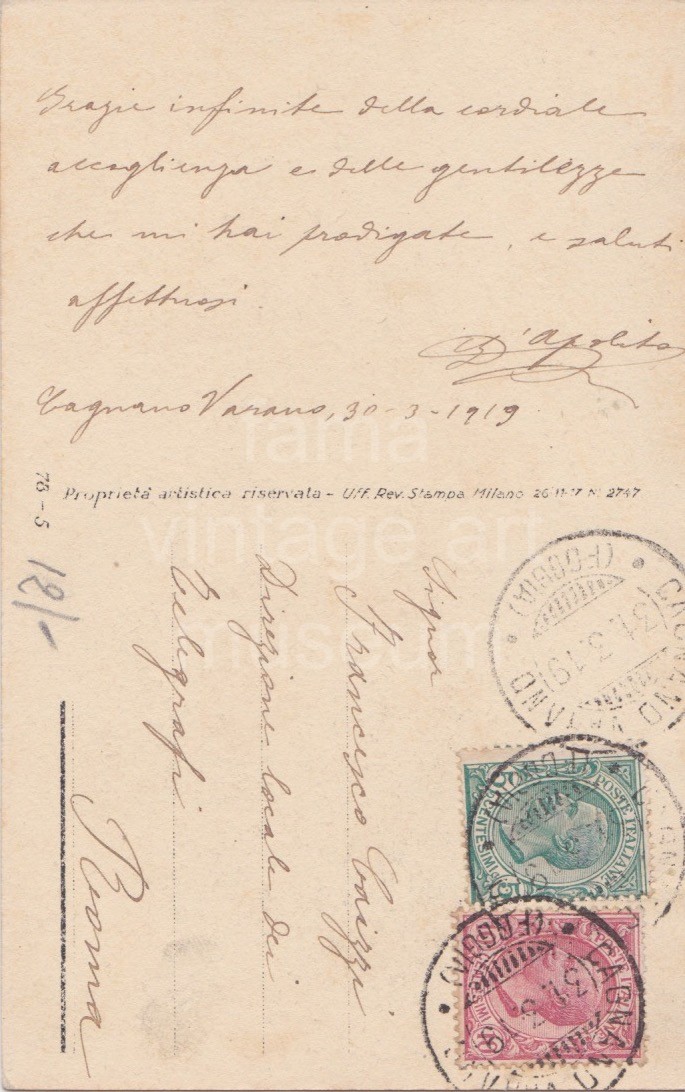 Grazie infinite della cordiale
accoglienza e delle gentilezze
che mi hai prodigate, e saluti
affettuosi.
D'Apolito
Cagnano Varano, 30-3-1919
Proprietà artistica riservata - Uff. Rev. Stampa Milano 26-11-17 N. 2747
78 - 5
Signor
Francesco
Direzione locale dei
Telegrafi
Roma
CAGNANO VARANO
(FOGGIA)
31.3.19
POSTE ITALIANE
CENTESIMI
CAGNANO
(FOGGIA)
31.3.19
fama
vintage art
museum